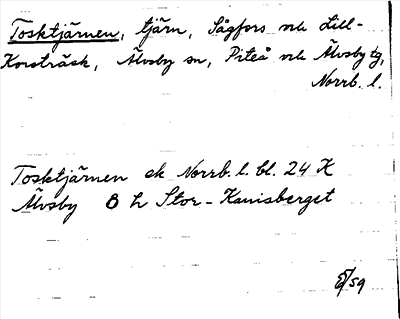 Tosktjärnen, tjärn, Sågfors och Lill-
Korsträsk, Älvsby sn, Piteå och Älvsby tg,
Norrb. l.
Tosktjärnen ek Norrb. l. bl. 24 K
Älvsby B h Stor-Kanisberget
/59